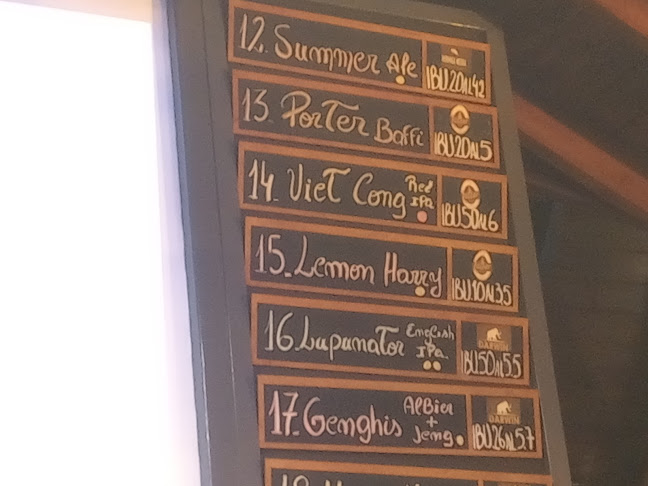 12. Summer Ale IBU.20 AL42
13. Porter Baffi IBU20 AL5
14. Viet Cong Red IPA IBU50 AL6
15. Lemon Harry IBU.10 AL35
16. Lupunator English IPA DARWIN IBU50 AL5.5
17. Genghis AlBier + Jeng. DARWIN IBU26 AL5.7